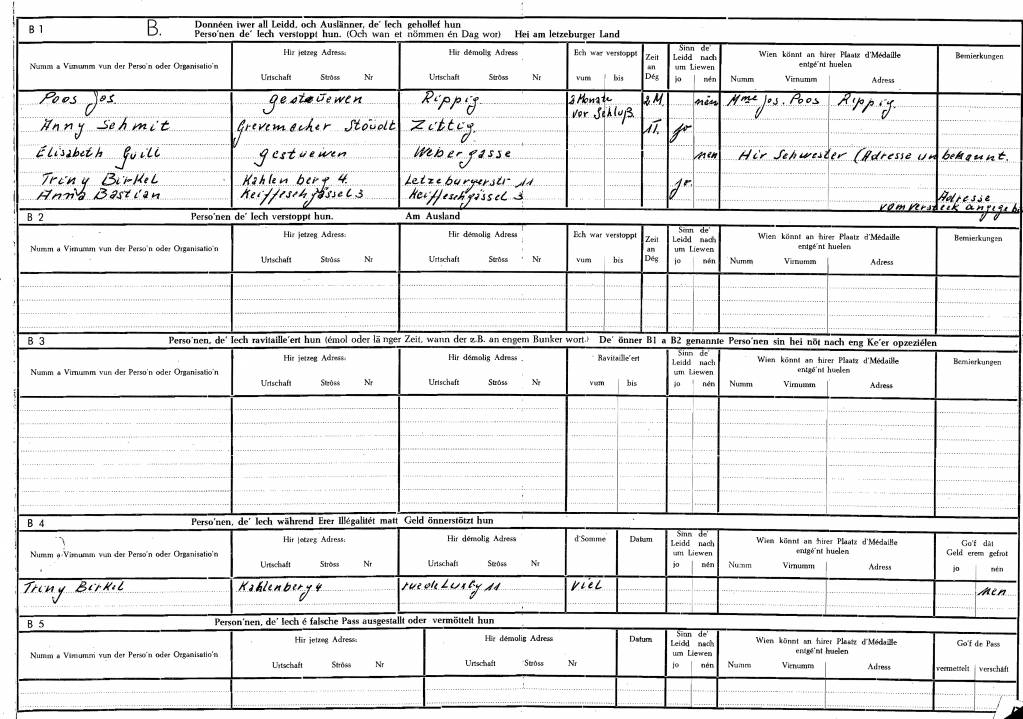 B 1 B. Donnéen iwer all Leidd, och Auslänner, de' Iech gehollef hun
Perso'nen de' Iech verstoppt hun. (Och wan et nömmen én Dag wor) Hei am letzeburger Land
Numm a Virnumm vun der Perso'n oder Organisatio'n Hir jetzeg Adress: Hir démolig Adress Ech war verstoppt Zeit an Dég Sinn de' Leidd nach um Liewen Wien könnt an hirer Plaatz d'Médaille entgé'nt huelen Bemierkungen
Urtschaft Ströss Nr Urtschaft Ströss Nr vum bis jo nén Numm Virnumm Adress
Poos Jos. gestuewen Rippig. 2 Monate vor Schluß 2.M. nén Mme Jos. Poos Rippig.
Anny Schmit Grevemacher Stöudt Zittig. 11. jo
Elisabeth Guill gestuewen Webergasse nen Hir Schwester (Adresse unbekannt.
Triny Birkel Kahlenberg 4. Letzeburgerstr 11 jo.
Anna Bastian Keiffeschgässel 3 Keiffeschgässel 3 Adresse vom Versteck angegebe
B 2 Perso'nen de' Iech verstoppt hun. Am Ausland
Numm a Virnumm vun der Perso'n oder Organisatio'n Hir jetzeg Adress: Hir démolig Adress Ech war verstoppt Zeit an Dég Sinn de' Leidd nach um Liewen Wien könnt an hirer Plaatz d'Médaille entgé'nt huelen Bemierkungen
Urtschaft Ströss Nr Urtschaft Ströss Nr vum bis jo nén Numm Virnumm Adress
B 3 Perso'nen, de' Iech ravitaille'ert hun (émol oder länger Zeit, wann der z.B. an engem Bunker wort.) De' önner B1 a B2 genannte Perso'nen sin hei nöt nach eng Ke'er opzeziélen
Numm a Virnumm vun der Perso'n oder Organisatio'n Hir jetzeg Adress: Hir démolig Adress Ravitaille'ert Sinn de' Leidd nach um Liewen Wien könnt an hirer Plaatz d'Médaille entgé'nt huelen Bemierkungen
Urtschaft Ströss Nr Urtschaft Ströss Nr vum bis jo nén Numm Virnumm Adress
B 4 Perso'nen, de' Iech während Erer Illégalitét matt Geld önnerstötzt hun
Numm a Virnumm vun der Perso'n oder Organisatio'n Hir jetzeg Adress: Hir démolig Adress d'Somme Datum Sinn de' Leidd nach um Liewen Wien könnt an hirer Plaatz d'Médaille entgé'nt huelen Go'f dát Geld erem gefrot
Urtschaft Ströss Nr Urtschaft Ströss Nr jo nén Numm Virnumm Adress jo nén
Triny Birkel Kahlenberg 4 rue de Luxbg 11 viel nen
B 5 Person'nen, de' Iech é falsche Pass ausgestallt oder vermöttelt hun
Numm a Virnumm vun der Perso'n oder Organisatio'n Hir jetzeg Adress: Hir démolig Adress Datum Sinn de' Leidd nach um Liewen Wien könnt an hirer Plaatz d'Médaille entgé'nt huelen Go'f de Pass
Urtschaft Ströss Nr Urtschaft Ströss Nr jo nén Numm Virnumm Adress vermettelt verschäft